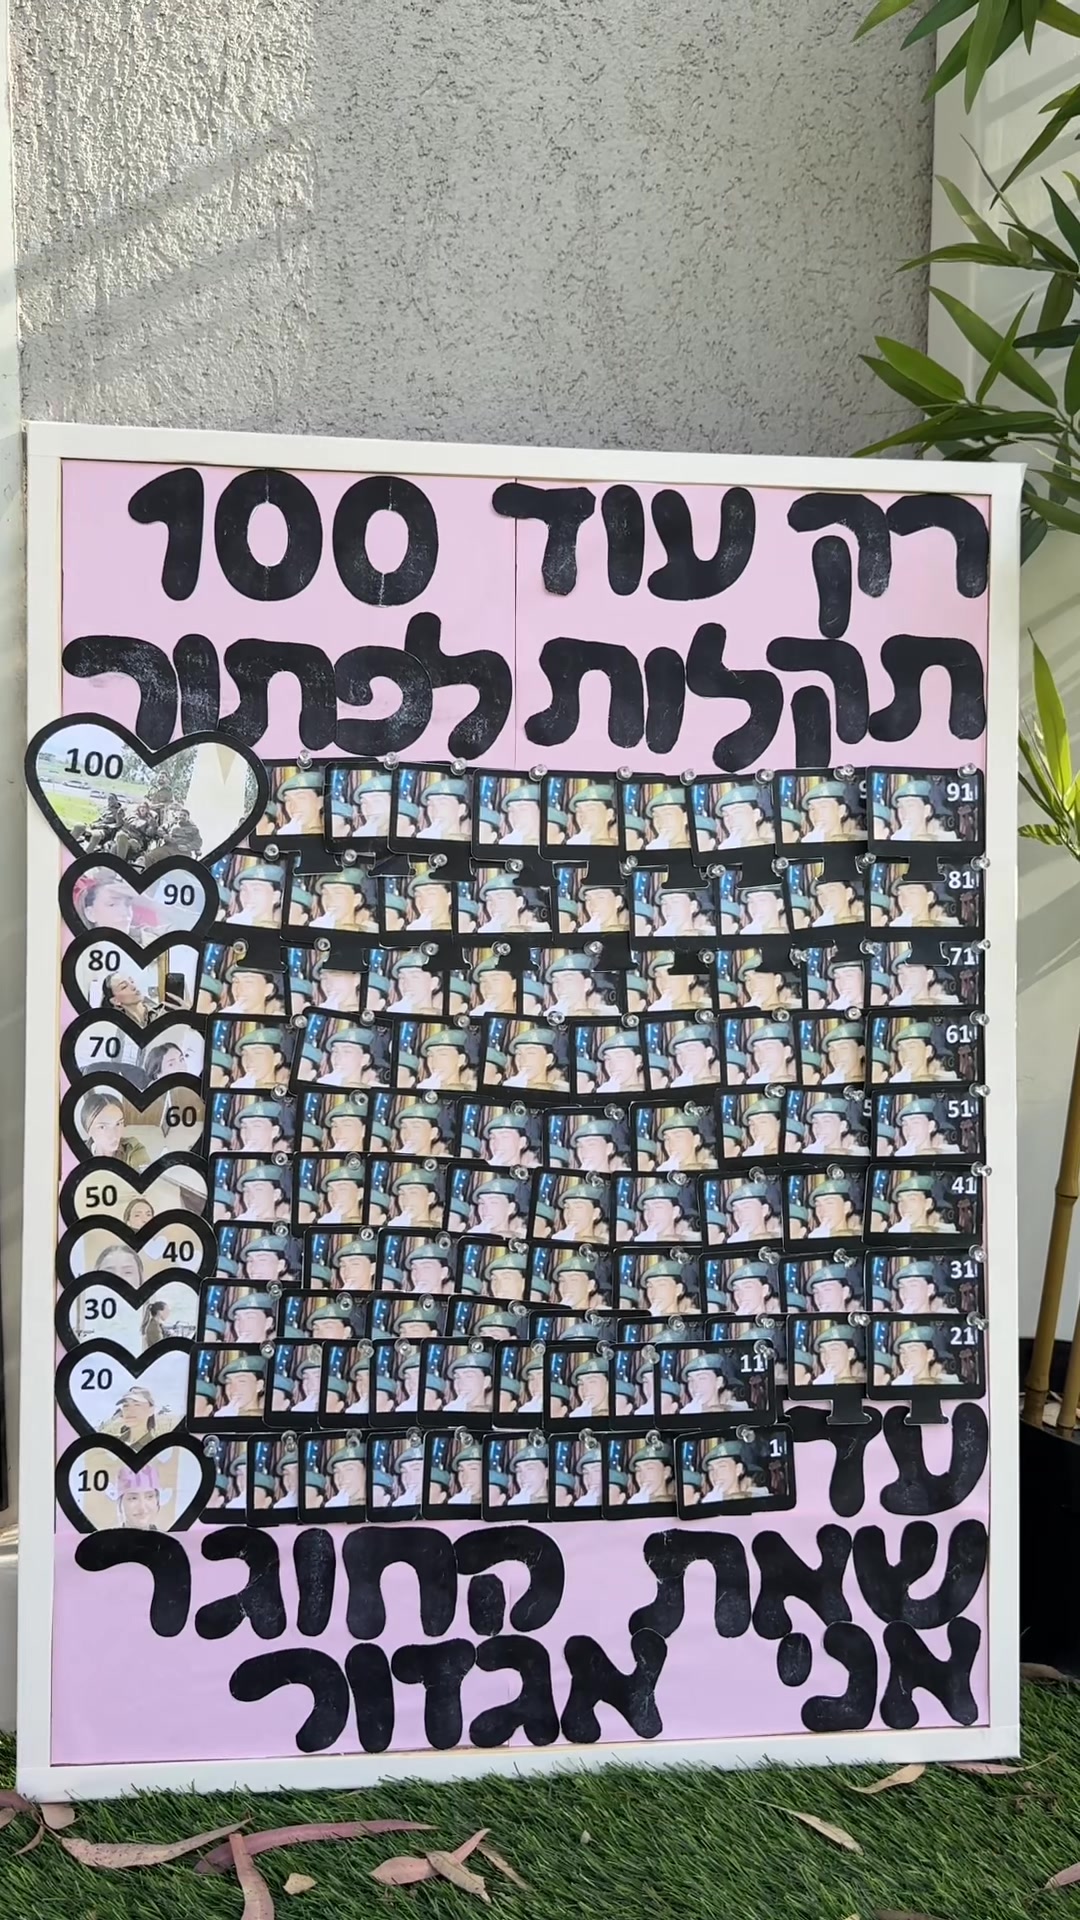 רק עוד 100
תקלות לפתור
100
91
90
81
80
71
70
61
60
51
50
41
40
31
30
21
20
11
10
1
עד
שאת החוגר
אני אגדור